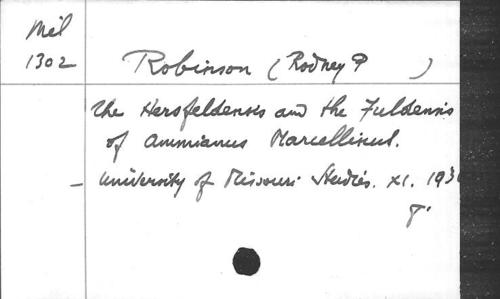 Mel
1302
Robinson (Rodney P )
The Hersfeldensis and the Fuldensis
of Ammianus Marcellinus.
– University of Missouri Studies. XI. 193